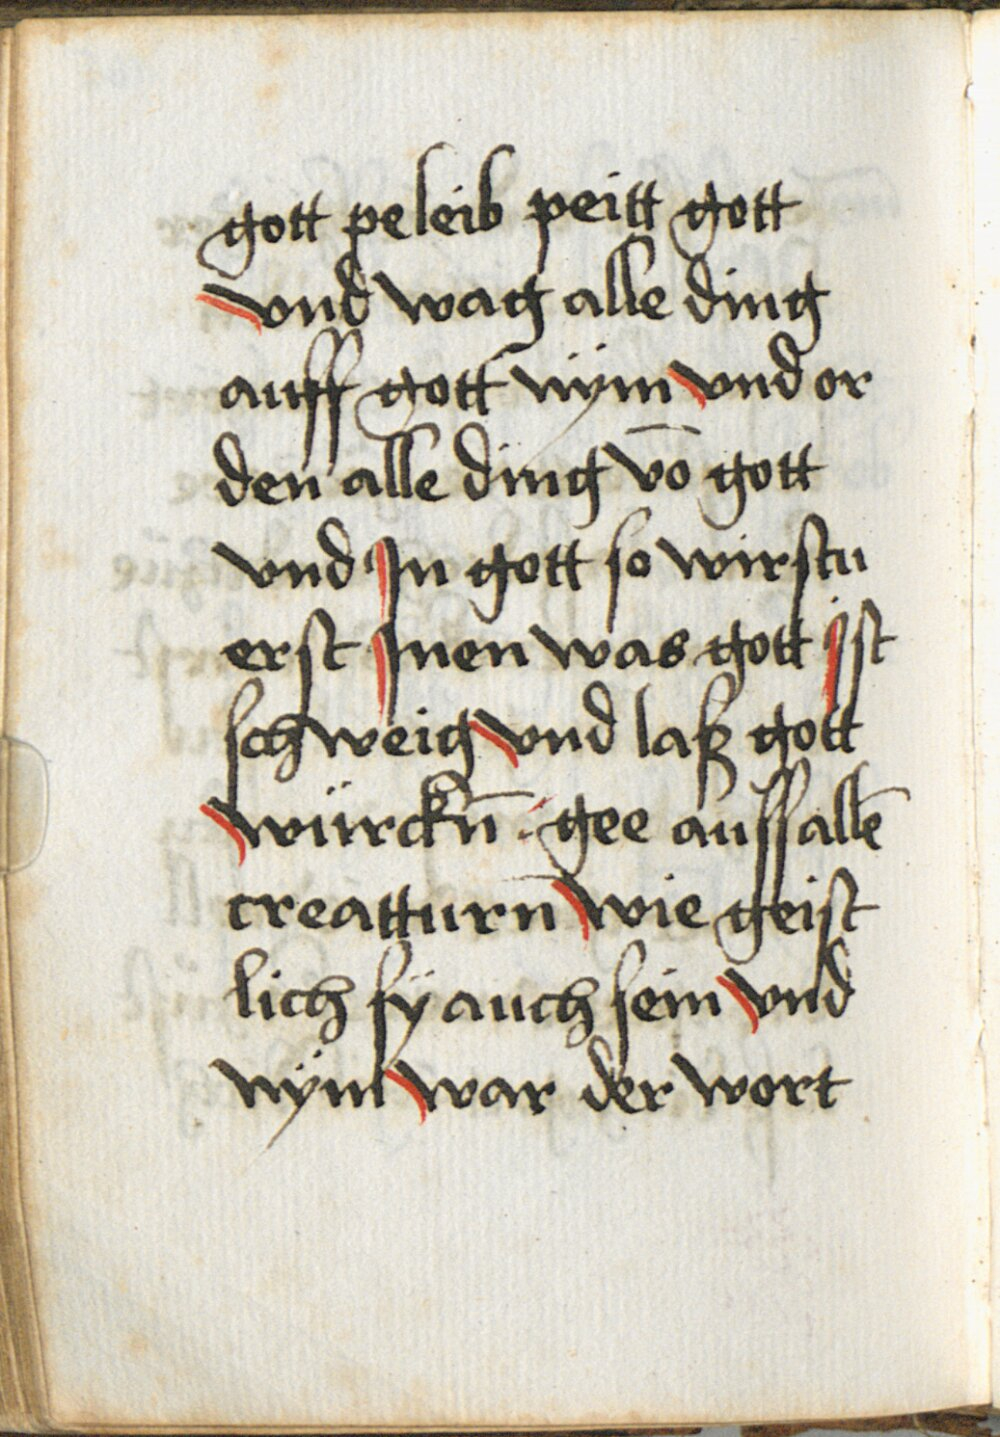 gott peleib peitt gott
vnd wag alle ding
auff gott nÿm vnd or
den alle ding vō gott
vnd Jn gott so wirstu
erst Jnen was gott Jst
schweig vnd laß gott
würckn̄ · gee auss allē
creatturn wie geist
lich sÿ auch sein vnd
nÿm war der wort